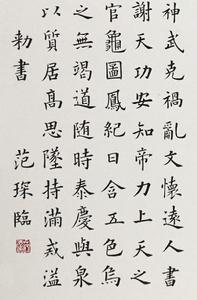 神武克禍亂文懷遠人書
謝天功安知帝力上天之
官龜圖鳳紀日含五色烏
之無竭道随時泰慶與泉
以質居高思墜持滿戒溢
勅書 范琛臨